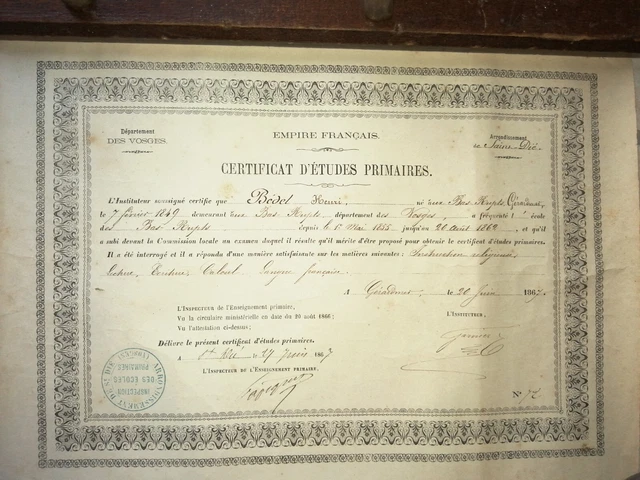 Département
DES VOSGES.
EMPIRE FRANÇAIS.
Arrondissement
de Saint-Dié.
CERTIFICAT D'ÉTUDES PRIMAIRES.
L'Instituteur soussigné certifie que Bédel Henri, né aux Bas-Rupts, Gérardmer,
le 7 février 1849 demeurant aux Bas-Rupts, département des Vosges, a fréquenté l'école
des Bas Rupts depuis le 1er Mai 1855 jusqu'au 20 Août 1862, et qu'il
a subi devant la Commission locale un examen duquel il résulte qu'il mérite d'être proposé pour obtenir le certificat d'études primaires.
Il a été interrogé et il a répondu d'une manière satisfaisante sur les matières suivantes: Instruction religieuse
Lecture, Ecriture, Calcul, Langue française.
A Gérardmer, le 20 Juin 1867.
L'INSPECTEUR de l'Enseignement primaire,
Vu la circulaire ministérielle en date du 20 août 1866;
Vu l'attestation ci-dessus;
L'INSTITUTEUR,
Délivre le présent certificat d'études primaires.
A St Dié le 27 Juin 1867
L'INSPECTEUR DE L'ENSEIGNEMENT PRIMAIRE,
INSPECTION
DES ÉCOLES
PRIMAIRES
ARRONDISSEMENT DE ST DIÉ (VOSGES)
N° 72